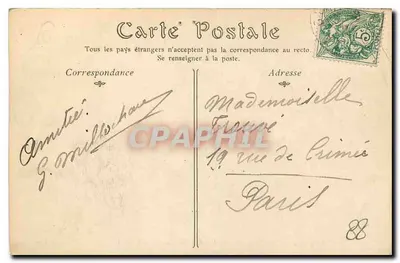 Carte Postale
Tous les pays étrangers n'acceptent pas la correspondance au recto.
Se renseigner à la poste.
Correspondance
Adresse
5
Amitié.
G.
Mademoiselle
19 rue de Crimée
Paris
88
CPAPHIL